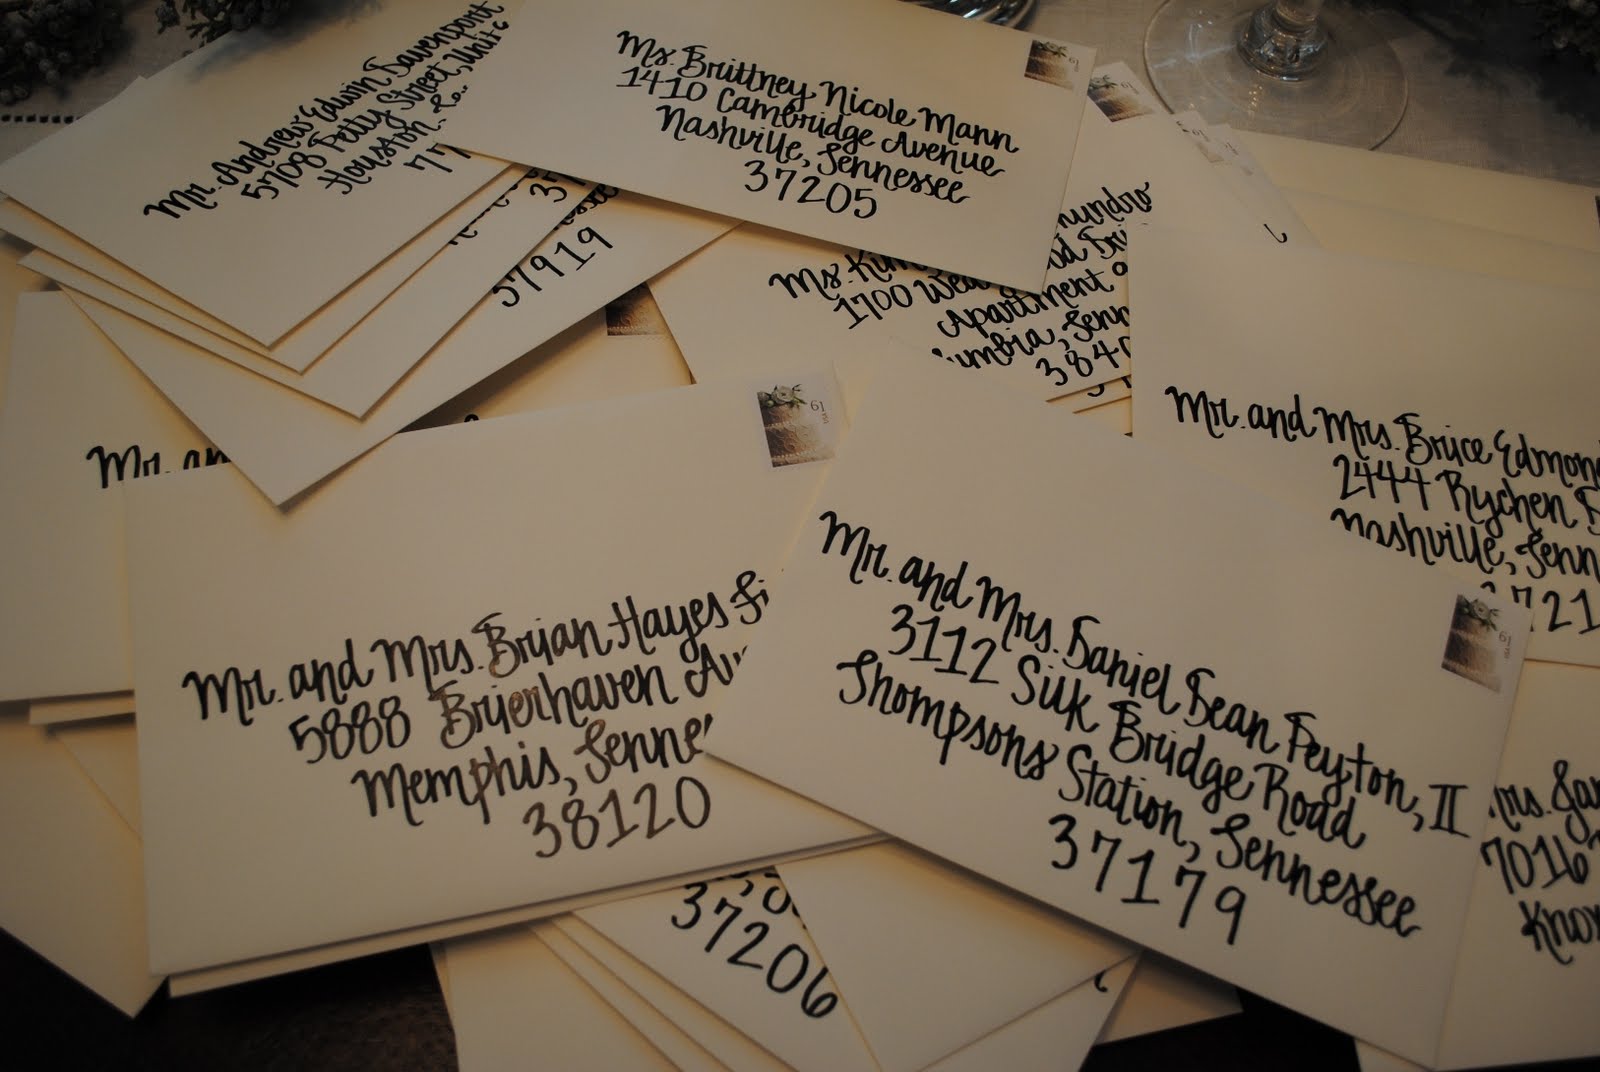 Mr. Andrew Edwin Davenport
5708 Petty Street, Unit C
Houston
77
Ms. Brittney Nicole Mann
1410 Cambridge Avenue
Nashville, Tennessee
37205
61
61
37
37919
Ms. Kim
1700
Apartment
Tenn
384
Mr. and Mrs. Brice
2444 Rychen
Nashville, Tenn
3721
Mr. an
61
USA
Mr. and Mrs. Brian Hayes
5888 Brierhaven Av
Memphis, Tenne
38120
61
USA
Mr. and Mrs. Daniel Dean Peyton, II
3112 Silk Bridge Road
Thompsons Station, Tennessee
37179
Mrs. Ja
7016
Knox
37206